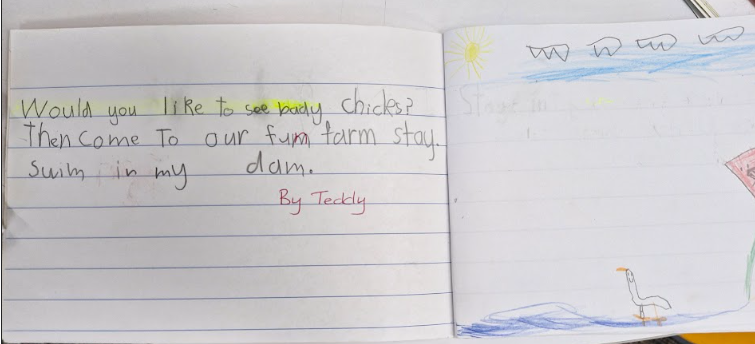 Would you like to see bady chicks?
Then come To our fum farm stay.
Swim in my dam.
By Teddy